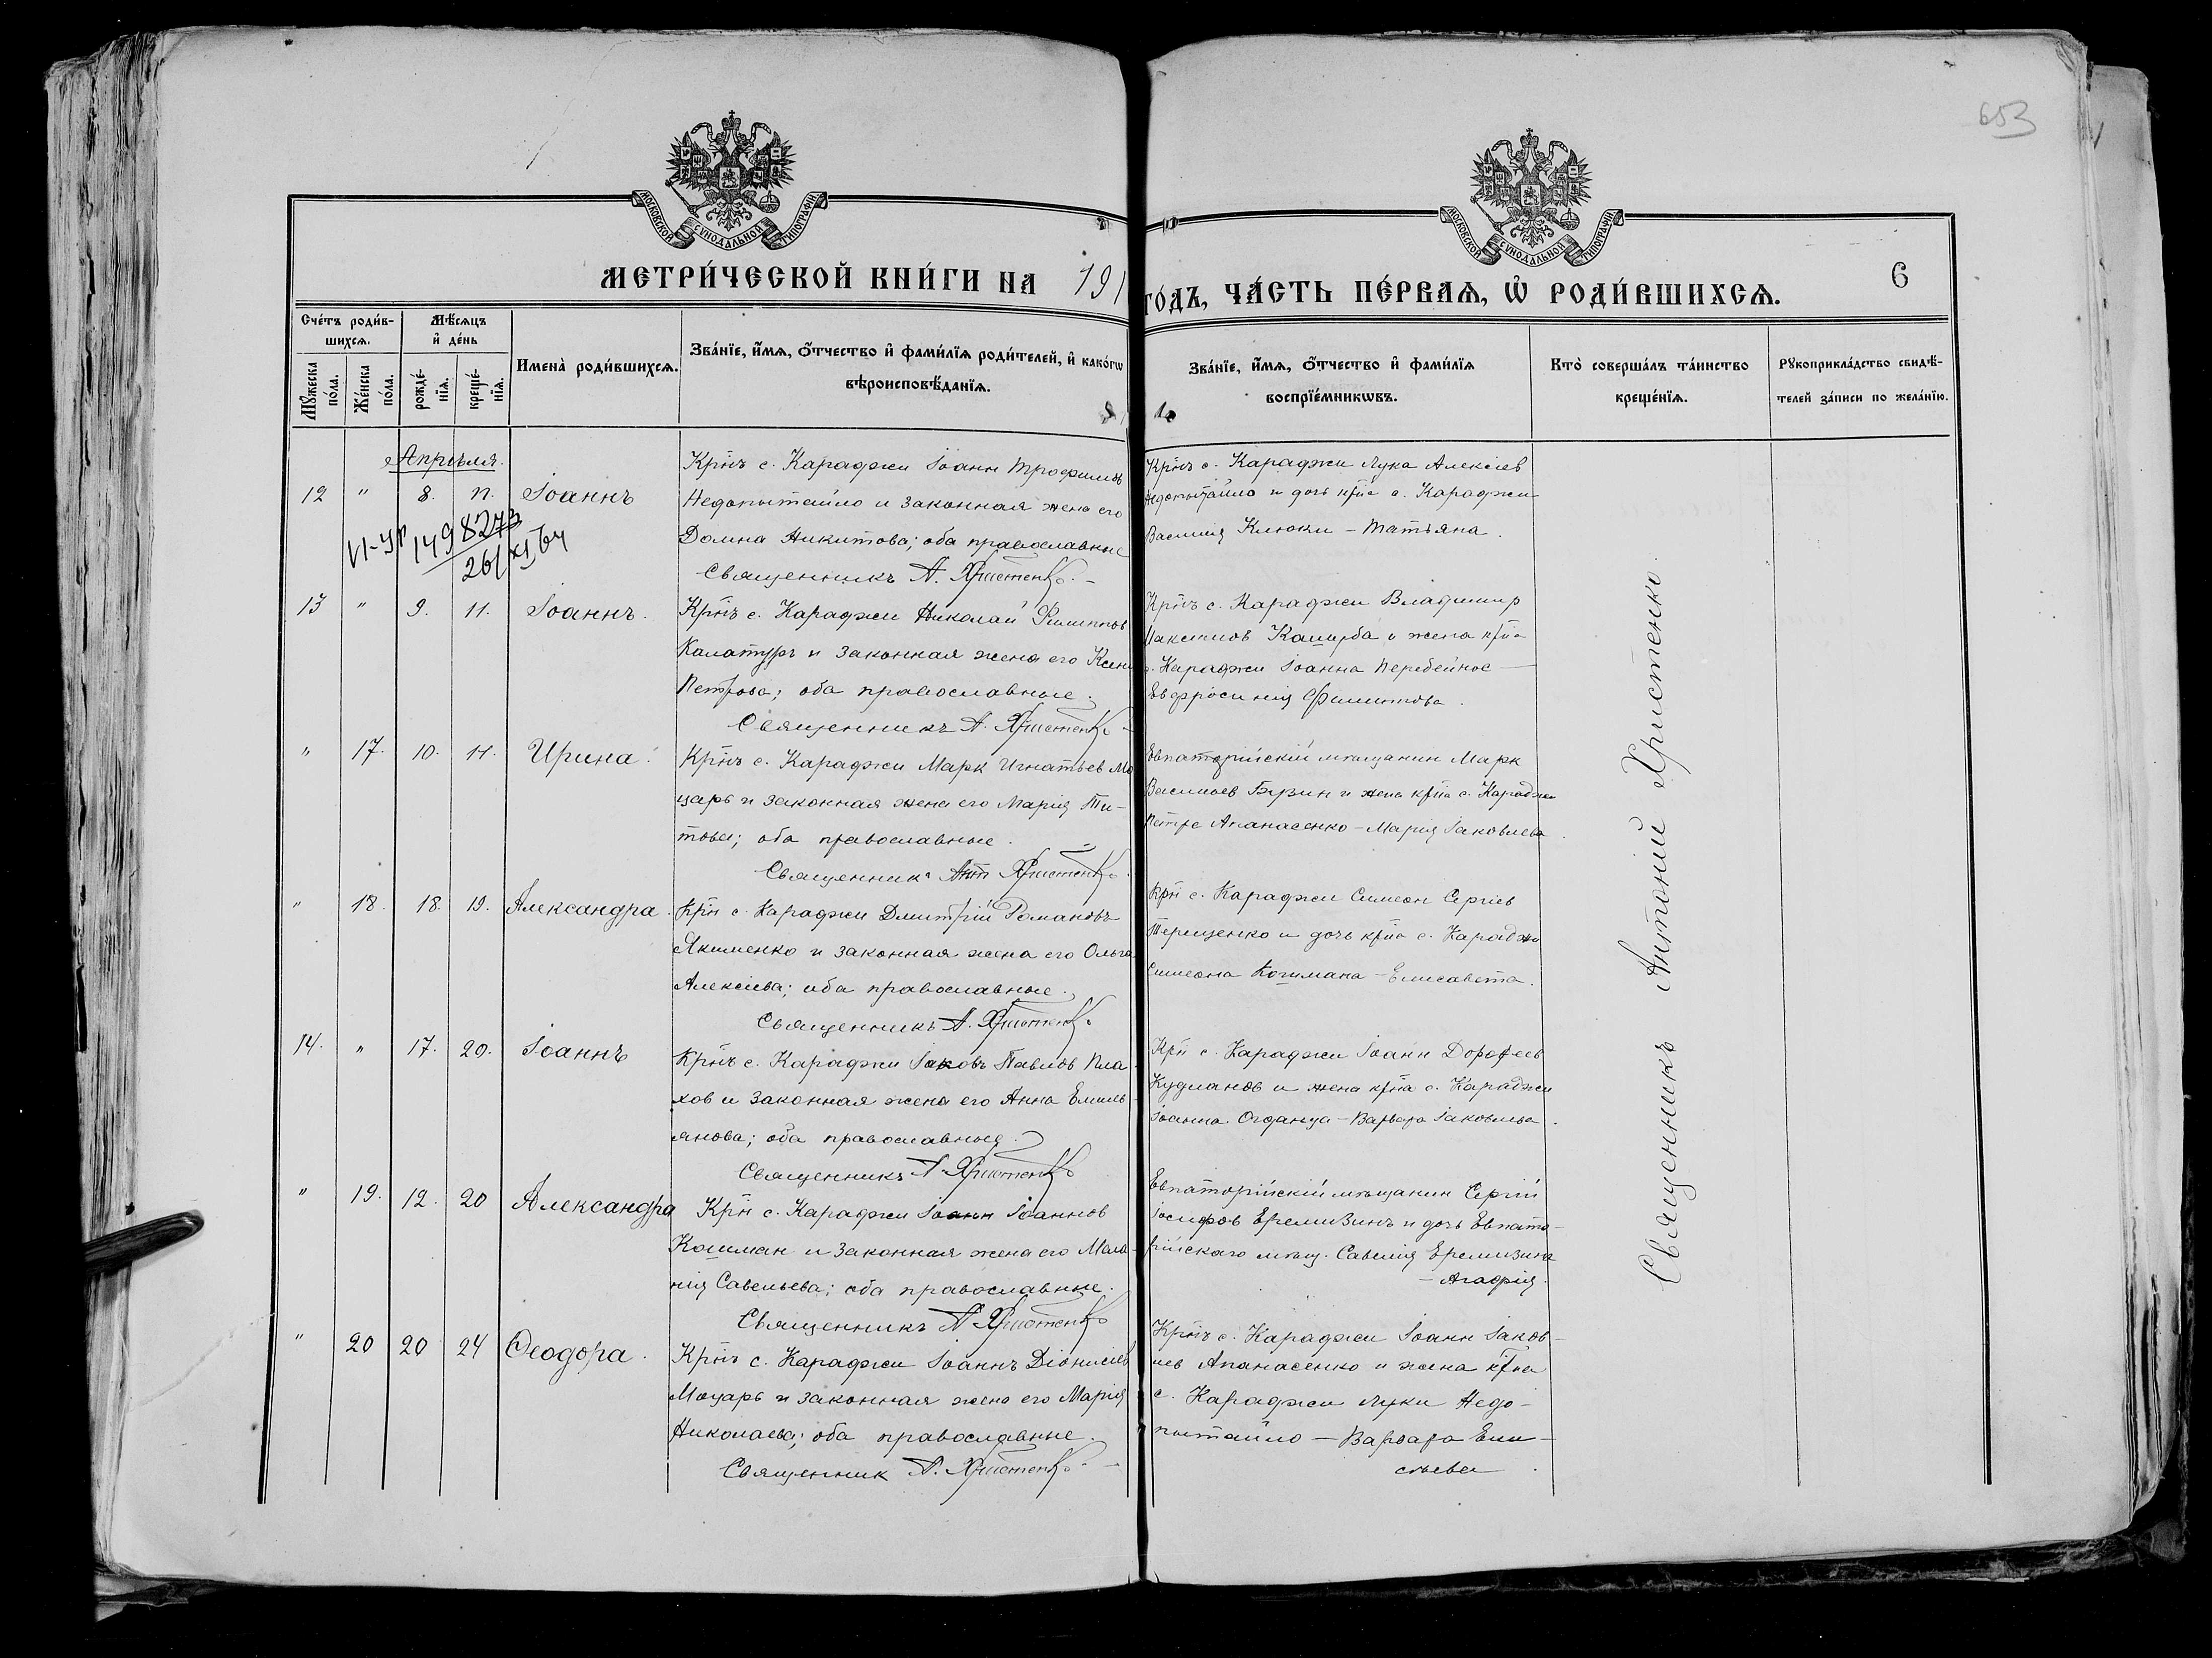 653
МОСКОВСКОЙ СѴНОДАЛЬНОЙ ТИПОГРАФІИ
МОСКОВСКОЙ СѴНОДАЛЬНОЙ ТИПОГРАФІИ
МЕТРИ́ЧЕСКОЙ КНИ́ГИ НА 191
ГО́ДЪ, ЧА́СТЬ ПЕ́РВАѦ, Ѽ РОДИ́ВШИХСѦ.
6
Сче́тъ роди́в-
шихсѧ.
Мꙋжеска по́ла.
Же́нска по́ла.
Мѣ́сѧцъ
и҆ де́нь
рожде́-
нїѧ.
креще́-
нїѧ.
Имена̀ роди́вшихсѧ.
Зва́нїе, и҆́мѧ, ѻ҆́тчество и҆ фами́лїѧ роди́телей, и҆ како́гѡ
вѣроисповѣ́данїѧ.
Зва́нїе, и҆́мѧ, ѻ҆́тчество и҆ фами́лїѧ
воспрїе́мникѡвъ.
Кто̀ соверша́лъ та́инство
креще́нїѧ.
Рꙋкоприкла́дство свидѣ́-
телей за́писи по жела́нїю.
Апрѣля.
12 " 8. 11. Іоаннъ
Крнъ с. Караджи Іоанн Трофимов
Недопытайло и законная жена его
Домна Никитова; оба православные
Священникъ А. Христенко
Крнъ с. Караджи Лука Алексіев
Недопытайло и дочь крна с. Караджи
Василія Клюки – Татьяна.
1498273
26/XI 64
13 " 9. 11. Іоаннъ.
Крнъ с. Караджи Николай Филиппов
Калатуръ и законная жена его Ксені
Петрова; оба православные.
Священникъ А. Христенко
Крнъ с. Караджи Владимир
Максимов Кашуба и жена крна
с. Караджи Іоанна Перебейнос –
Евфросинія Филиппова.
" 17. 10. 11. Ирина.
Крнъ с. Караджи Марк Игнатьев Мо
царь и законная жена его Марія Ти-
това; оба православные.
Священникъ Ант Христенко
Евпаторійскій мѣщанин Марк
Васильев Бузин и жена крна с. Караджи
Петра Апанасенко – Марія Іаковлева.
" 18. 18. 19. Александра.
Крн с. Караджи Димитрій Романовъ
Якименко и законная жена его Ольга
Алексіева; оба православные.
Священникъ А. Христенко
Крн с. Караджи Симеон Сергіев
Терещенко и дочь крна с. Караджи
Симеона Кошмана – Елисавета.
14. " 17. 20. Іоаннъ
Крнъ с. Караджи Іаковъ Павлов Пла
хов и законная жена его Анна Емиль-
янова; оба православныя.
Священникъ А. Христенко
Крн с. Караджи Іоанн Дорофеев
Кудланов и жена крна с. Караджи
Іоанна Огданца – Варвара Іаковлева.
" 19. 12. 20 Александра
Крн с. Караджи Іоанн Іоаннов
Кошман и законная жена его Мела-
нія Савельева; оба православные.
Священникъ А Христенко
Евпаторійскій мѣщанин Сергій
Іосифов Еремизинъ и дочь Евпато-
рійскаго мѣщ. Савелія Еремизина
– Агафія.
" 20 20 24 Ѳеодора.
Крнъ с. Караджи Іоаннъ Діонисіев
Моцарь и законная жена его Марія
Николаева; оба православные.
Священник А. Христенко
Крнъ с. Караджи Іоанн Іаков-
лев Апанасенко и жена крна
с. Караджи Луки Недо-
пытайло – Варвара Ели-
сѣева.
Священникъ Антоній Христенко.